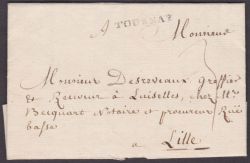 A TOURNAY
Monsieur
Monsieur Desreveaux, Greffier
et Receveur à Luiselles, chez Mr
Becquart Notaire et procureur Rüe
basse
a Lille